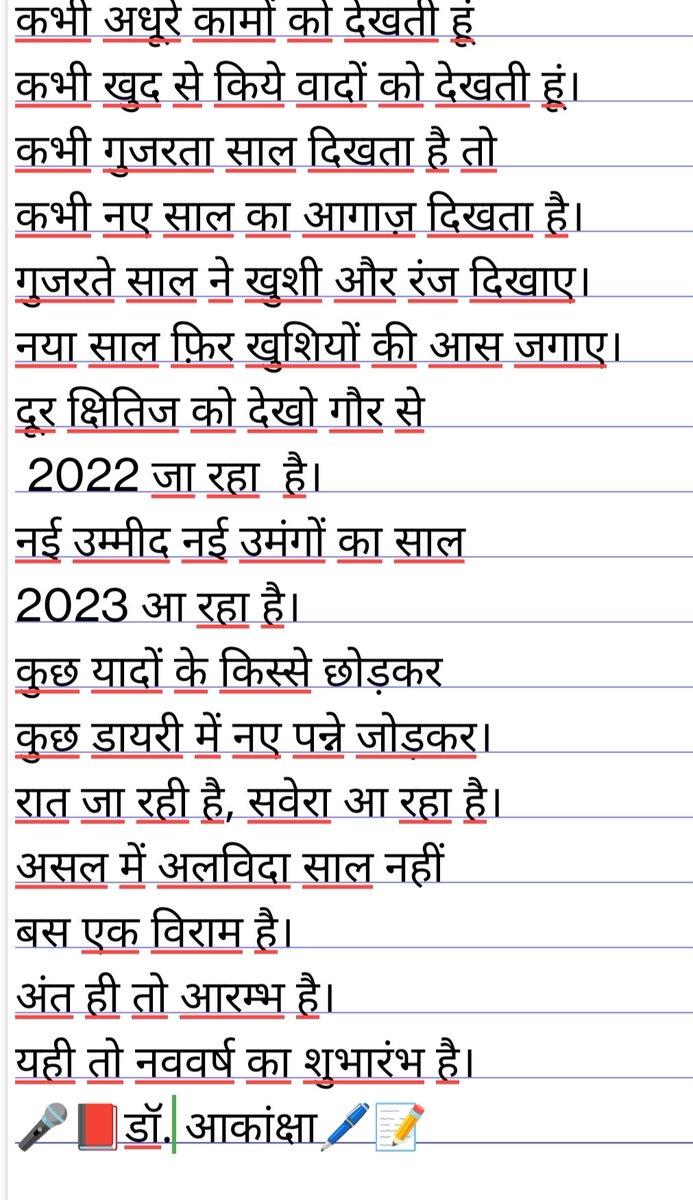 कभी अधूरे कामों को देखती हूं
कभी खुद से किये वादों को देखती हूं।
कभी गुजरता साल दिखता है तो
कभी नए साल का आगाज़ दिखता है।
गुजरते साल ने खुशी और रंज दिखाए।
नया साल फ़िर खुशियों की आस जगाए।
दूर क्षितिज को देखो गौर से
2022 जा रहा है।
नई उम्मीद नई उमंगों का साल
2023 आ रहा है।
कुछ यादों के किस्से छोड़कर
कुछ डायरी में नए पन्ने जोड़कर।
रात जा रही है, सवेरा आ रहा है।
असल में अलविदा साल नहीं
बस एक विराम है।
अंत ही तो आरम्भ है।
यही तो नववर्ष का शुभारंभ है।
🎤📕डॉ. आकांक्षा🖊️📝